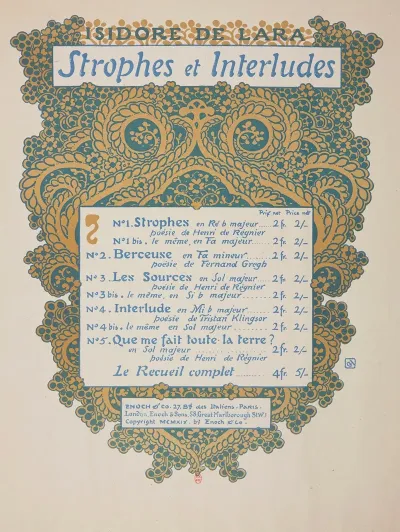 ISIDORE DE LARA
Strophes et Interludes
Prix net Price net
No 1. Strophes en Ré b majeur .... 2 fr. 2/-
poésie de Henri de Régnier
No 1 bis. le même, en Fa majeur .... 2 fr. 2/-
No 2. Berceuse en Fa mineur .... 2 fr. 2/-
poésie de Fernand Gregh
No 3. Les Sources en Sol majeur .... 2 fr. 2/-
poésie de Henri de Régnier
No 3 bis. le même, en Si b majeur .... 2 fr. 2/-
No 4. Interlude en Mi b majeur .... 2 fr. 2/-
poésie de Tristan Klingsor
No 4 bis. le même en Sol majeur .... 2 fr. 2/-
No 5. Que me fait toute la terre?
en Sol majeur .... 2 fr. 2/-
poésie de Henri de Régnier
Le Recueil complet .... 4 fr. 5/-
ENOCH & Co. 27, Bd des Italiens - PARIS -
London, Enoch & Sons, 58 Great Marlborough St W.
Copyright MCMXIV. by Enoch & Co.